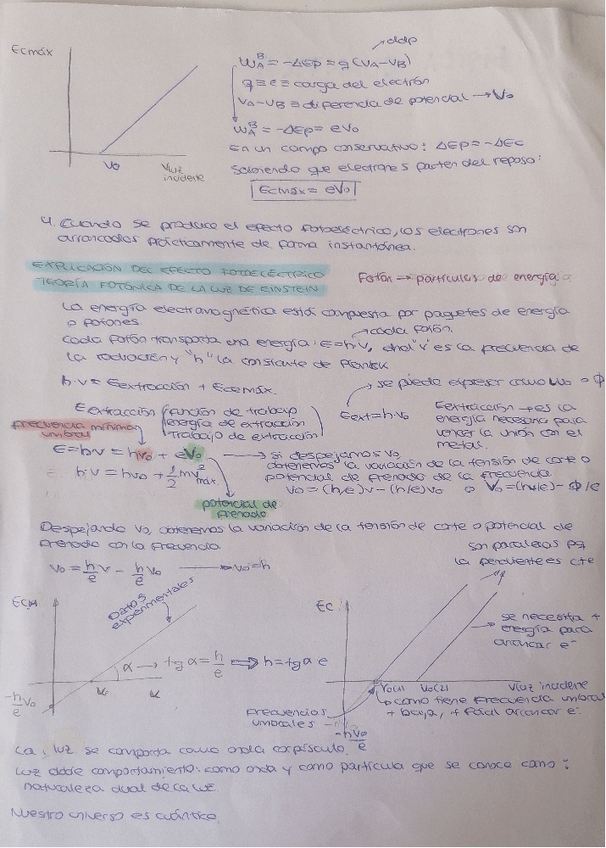 Ecmáx
ddp
W_A^B = -ΔEp = q(VA-VB)
q ≡ e = carga del electrón
VA-VB ≡ diferencia de potencial → V₀
W_A^B = -ΔEp = eV₀
En un campo conservativo: ΔEp = -ΔEc
Sabiendo que electrones parten del reposo:
Ecmáx = eV₀
ν₀
νluz incidente
4. Cuando se produce el efecto fotoeléctrico, los electrones son
arrancados prácticamente de forma instantánea.
EXPLICACIÓN DEL EFECTO FOTOELÉCTRICO
TEORÍA FOTÓNICA DE LA LUZ DE EINSTEIN
Fotón → partículas de energía.
La energía electromagnética está compuesta por paquetes de energía
o fotones.
→ cada fotón.
Cada fotón transporta una energía: E=hν, "ν" es la frecuencia de
la radiación y "h" la constante de Planck
h·ν = Eextracción + Ecmáx.
→ se puede expresar como W₀ = Φ
Eextracción (función de trabajo
energía de extracción
trabajo de extracción)
Eext=h·ν₀
Eextracción → es la
energía necesaria para
vencer la unión con el
metal.
frecuencia mínima
umbral
E=hν = hν₀ + eV₀
→ si despejamos V₀
obtenemos la variación de la tensión de corte o
potencial de frenado de la frecuencia
h·ν = hν₀ + ½mv²máx
V₀=(h/e)ν-(h/e)ν₀ o V₀=(h/e)-Φ/e
potencial de
frenado
Despejando V₀, obtenemos la variación de la tensión de corte o potencial de
frenado con la frecuencia
V₀ = h/e ν - h/e ν₀ → v₀=h
son paralelas pq
la pendiente es cte
Ecm
Datos
experimentales
α → tg α = h/e ⇒ h = tg α e
-h/e ν₀
Ec
→ se necesita +
energía para
arrancar e⁻
ν₀(1)
ν₀(2)
νluz incidente
→ como tiene frecuencia umbral
+ baja, + fácil arrancar e⁻
Frecuencias
umbrales
-hν₀/e
La luz se comporta como onda corpúsculo.
Luz doble comportamiento: como onda y como partícula que se conoce como:
naturaleza dual de la luz.
Nuestro universo es cuántico